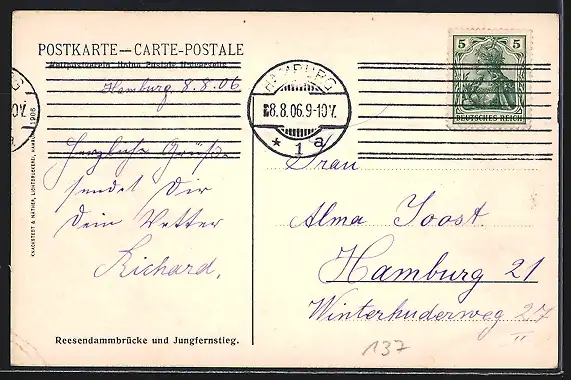 POSTKARTE — CARTE-POSTALE
Weltpostverein Union Postale Universelle
Hamburg, 8.8.06
Herzliche Grüße
sendet Dir
Dein Vetter
Richard.
Reesendammbrücke und Jungfernstieg.
KNACKSTEDT & NÄTHER, LICHTDRUCKEREI, HAMBURG 1906
HAMBURG
8.8.06.9-10V.
* 1 a
5 5
DEUTSCHES REICH
Frau
Alma Joost.
Hamburg 21
Winterhuderweg 27
137